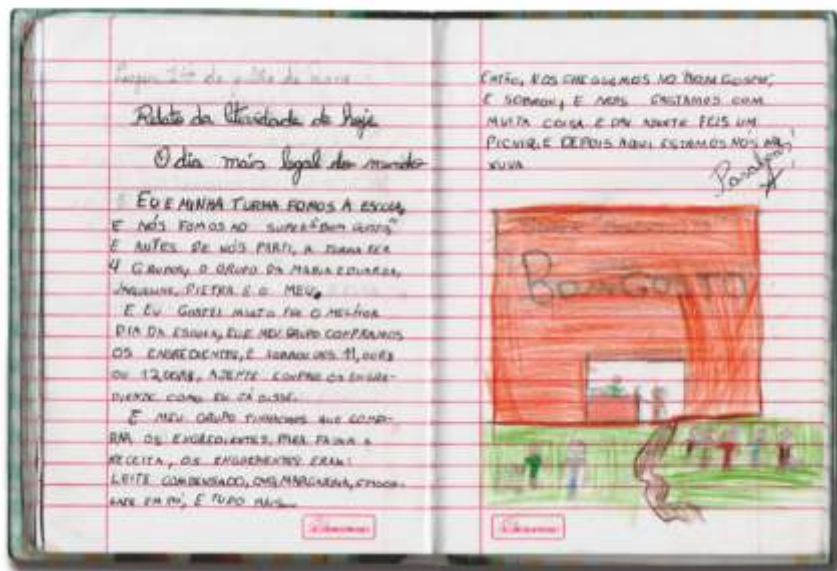 Relato da Atividade de hoje
O dia mais legal do mundo
EU E MINHA TURMA FOMOS A ESCOLA,
E NÓS FOMOS AO SUPER "BOM GOSTO"
E ANTES DE NÓS PARTI, A TURMA FEZ
4 GRUPOS, O GRUPO DA MARIA EDUARDA,
JAQUELINE, PIETRA E O MEU.
E EU GOSTEI MUITO FOI O MELHOR
DIA DA ESCOLA, EU E MEU GRUPO COMPRAMOS
OS ENGREDIENTES, E SOBROU UNS 11,00R$
OU 12,00R$, AJENTE COMPRO OS ENGRE-
DIENTE COMO EU JÁ DISSE.
E MEU GRUPO TINHAMOS QUE COMP-
RAR OS ENGREDIENTES, PARA FAZER A
RECEITA, OS ENGREDIENTES ERAM:
LEITE COMDENSADO, MARGARINA, CHOCO-
LATE EM PÓ, E TUDO MAIS...
ENTÃO, NOS CHEGGEMOS NO "BOM GOSTO",
E SOBROU, E NÓS GASTAMOS COM
MUITA COISA E DAI AJENTE FEIS UM
PICNIQUE DEPOIS AQUI ESTAMOS NÓS NA
XUVA
Parabéns!
BOM GOSTO